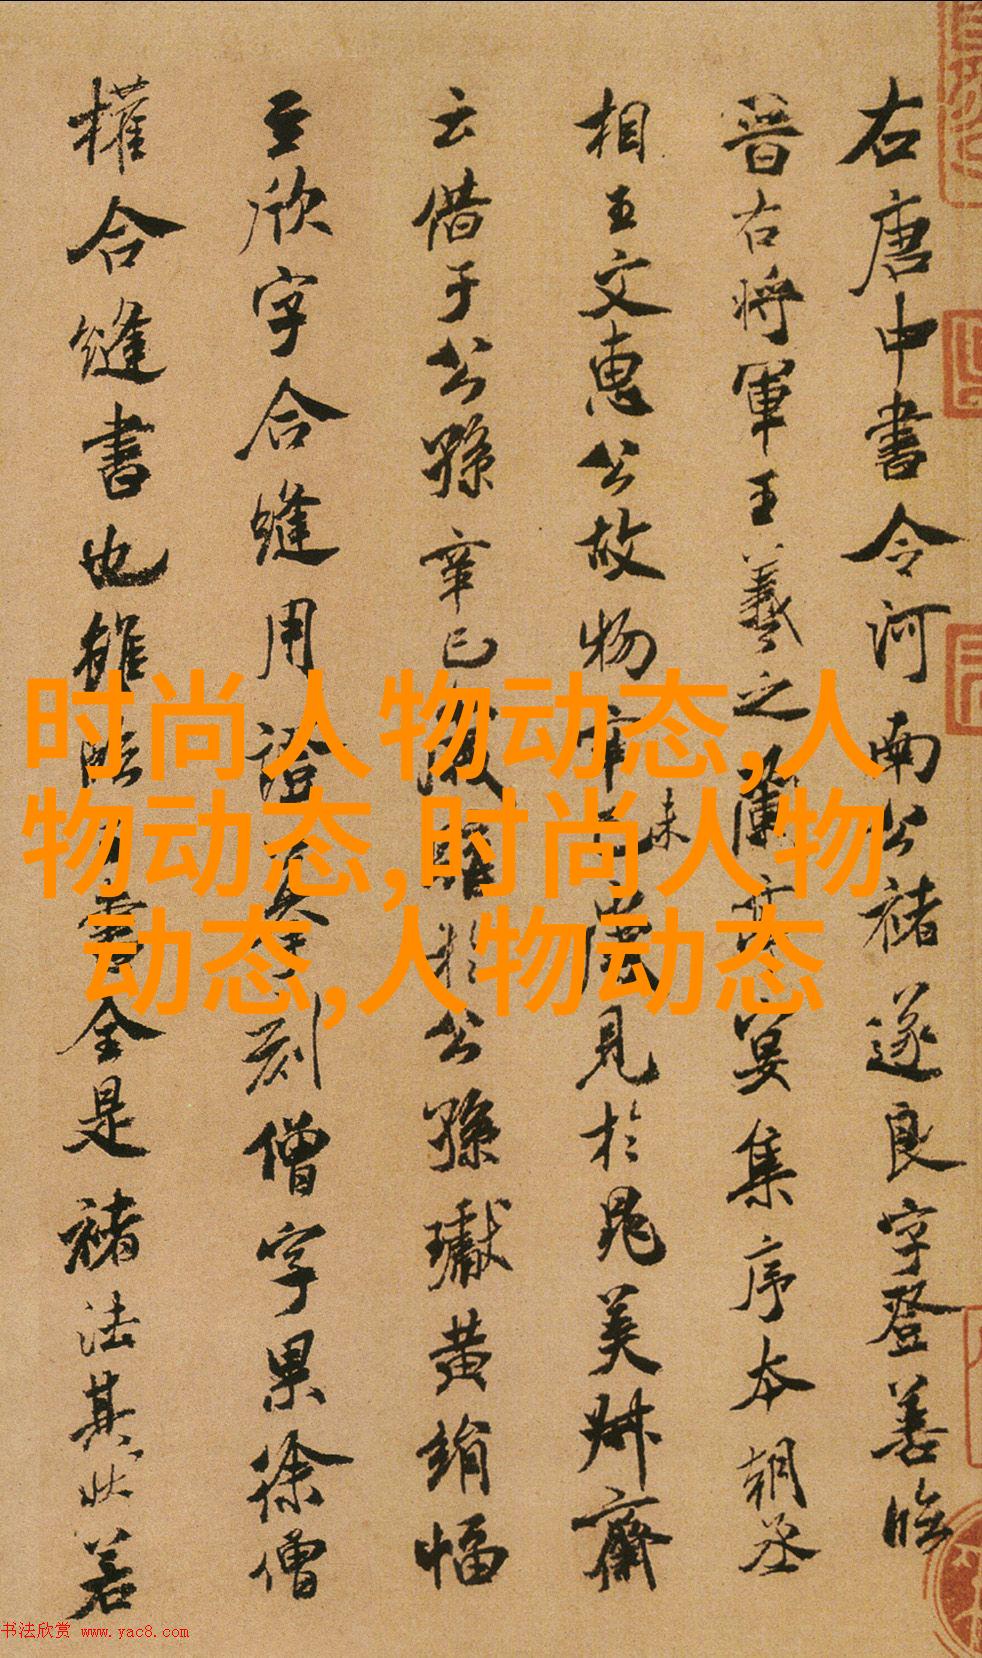 右唐中書令河南公褚遂良字登善臨
晉右將軍王羲之蘭亭宴集序本朝丞
相王文惠公故物辛未歲見於晁美叔齋
云借于公孫辛巳歲購於公孫瓛黃絹幅
至欣字合縫用證摹刻僧字果徐僧
權合縫書也雖臨王書全是褚法其狀若
时尚人物动态,人
物动态,时尚人物
动态,人物动态
书法欣赏 www.yac8.com